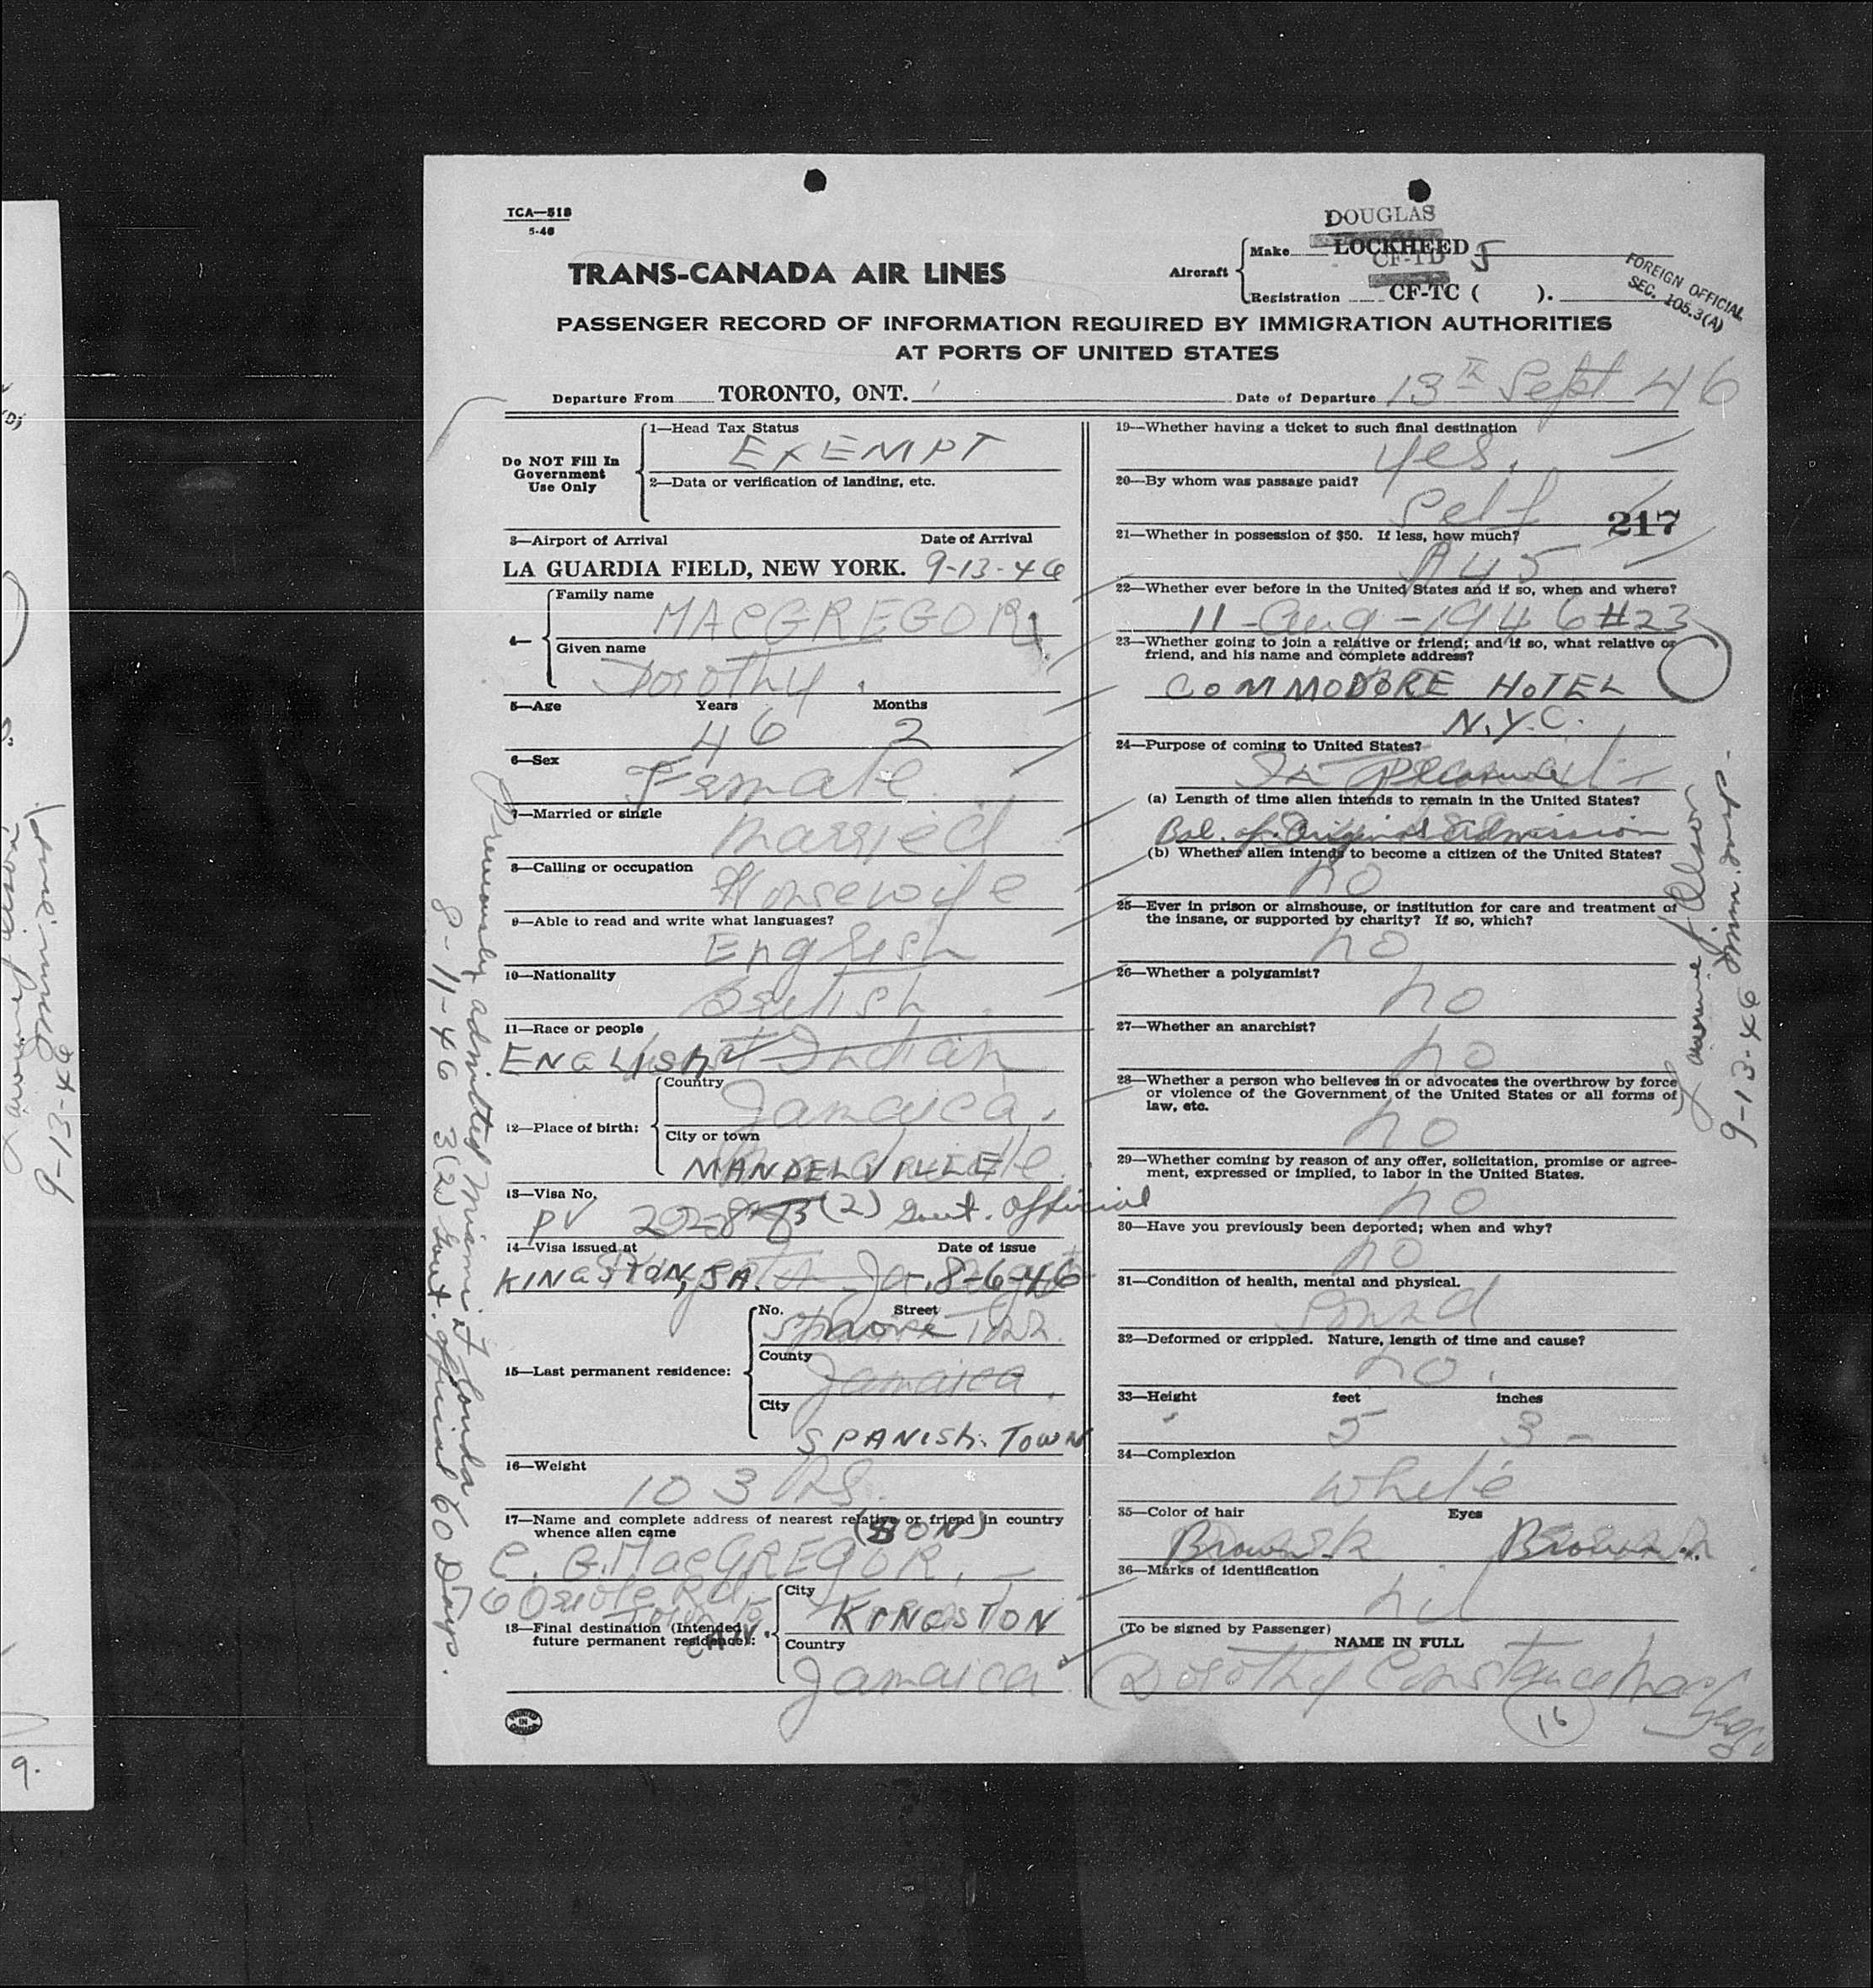 TCA—518
5-46
DOUGLAS
Make LOCKHEED
CF-TD J
TRANS-CANADA AIR LINES
Aircraft
Registration CF-TC ( ).
FOREIGN OFFICIAL
SEC. 105.3(A)
PASSENGER RECORD OF INFORMATION REQUIRED BY IMMIGRATION AUTHORITIES
AT PORTS OF UNITED STATES
Departure From TORONTO, ONT.
Date of Departure 13th Sept 46
Do NOT Fill In
Government
Use Only
1—Head Tax Status
EXEMPT
2—Data or verification of landing, etc.
3—Airport of Arrival Date of Arrival
LA GUARDIA FIELD, NEW YORK. 9-13-46
4—
Family name
MACGREGOR
Given name
Dorothy.
5—Age Years Months
46 2
6—Sex
Female
7—Married or single
Married
8—Calling or occupation
Housewife
9—Able to read and write what languages?
English
10—Nationality
British
11—Race or people
ENGLISH West Indian
12—Place of birth:
Country
Jamaica.
City or town
MANDEVILLE
13—Visa No.
PV (2) Govt. official
14—Visa issued at Date of issue
KINGSTON, JA. 8-6-46
15—Last permanent residence:
No. Street
none
County
Jamaica.
City
SPANISH TOWN
16—Weight
103 lbs.
17—Name and complete address of nearest relative or friend in country
whence alien came
(SON)
C. G. MacGREGOR,
18—Final destination (Intended
future permanent residence):
City
KINGSTON
Country
Jamaica
PRINTED
IN
CANADA
19—Whether having a ticket to such final destination
yes.
20—By whom was passage paid?
Self
217
21—Whether in possession of $50. If less, how much?
$45
22—Whether ever before in the United States and if so, when and where?
11-Aug-1946 #23
23—Whether going to join a relative or friend; and if so, what relative or
friend, and his name and complete address?
COMMODORE HOTEL
N.Y.C.
24—Purpose of coming to United States?
Pleasure
(a) Length of time alien intends to remain in the United States?
Bal. of Original admission
(b) Whether alien intends to become a citizen of the United States?
no
25—Ever in prison or almshouse, or institution for care and treatment of
the insane, or supported by charity? If so, which?
no
26—Whether a polygamist?
no
27—Whether an anarchist?
no
28—Whether a person who believes in or advocates the overthrow by force
or violence of the Government of the United States or all forms of
law, etc.
no
29—Whether coming by reason of any offer, solicitation, promise or agree-
ment, expressed or implied, to labor in the United States.
no
30—Have you previously been deported; when and why?
no
31—Condition of health, mental and physical.
Good
32—Deformed or crippled. Nature, length of time and cause?
no.
33—Height feet inches
5 3
34—Complexion
White
35—Color of hair Eyes
Brown Brown
36—Marks of identification
nil
(To be signed by Passenger)
NAME IN FULL
Dorothy Constance MacGregor
16
Previously admitted Miami Florida
8-11-46 3(2) Govt. official 60 Days.
9-13-46 Imm. Insp.
9-13-46